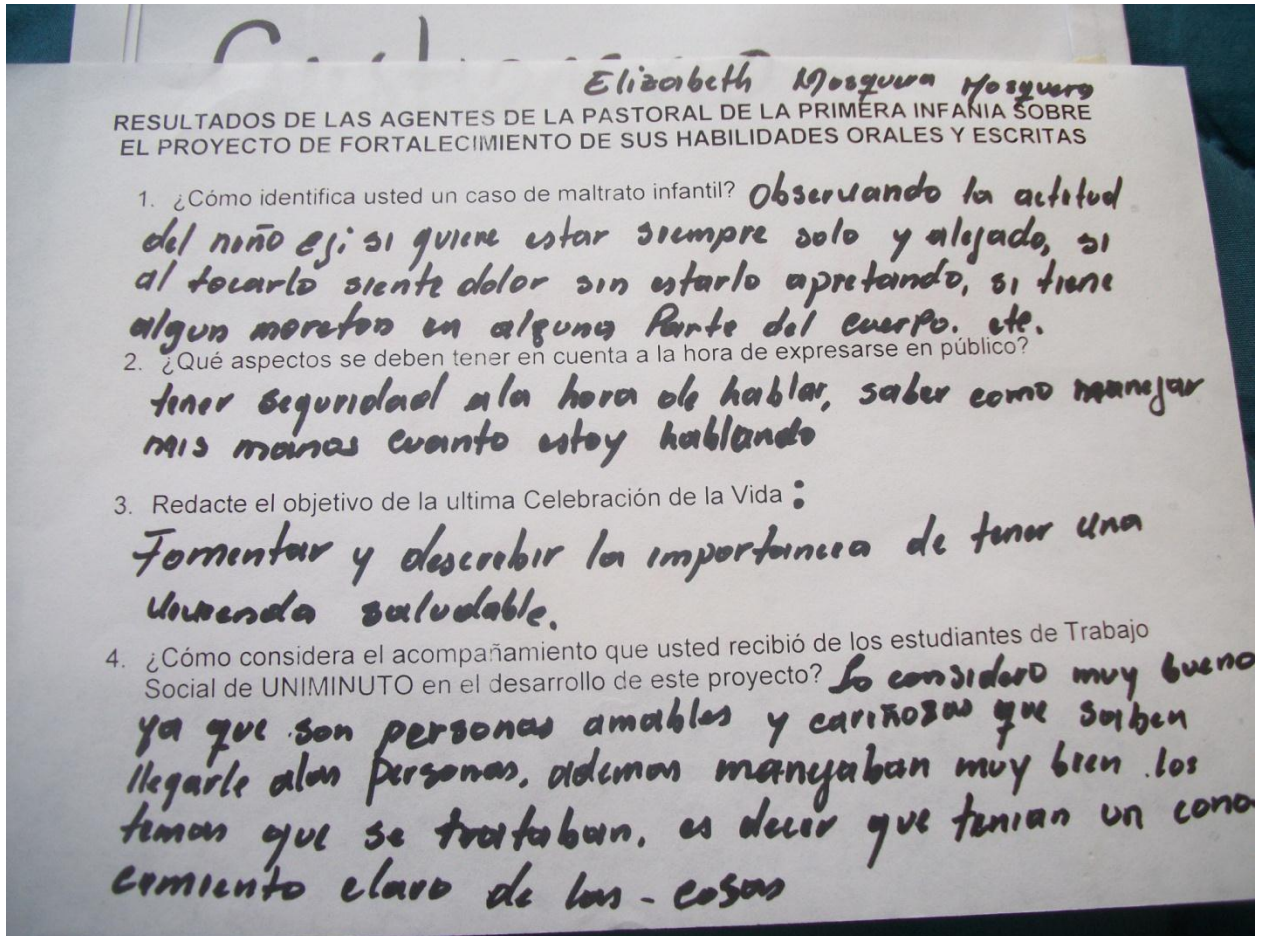 Elizabeth Mosquera Mosquera
RESULTADOS DE LAS AGENTES DE LA PASTORAL DE LA PRIMERA INFANIA SOBRE
EL PROYECTO DE FORTALECIMIENTO DE SUS HABILIDADES ORALES Y ESCRITAS
1. ¿Cómo identifica usted un caso de maltrato infantil? Observando la actitud
del niño ej: si quiere estar siempre solo y alejado, si
al tocarlo siente dolor sin estarlo apretando, si tiene
algun moreton en alguna Parte del cuerpo. etc.
2. ¿Qué aspectos se deben tener en cuenta a la hora de expresarse en público?
tener seguridad ala hora de hablar, saber como manejar
mis manos cuanto estoy hablando
3. Redacte el objetivo de la ultima Celebración de la Vida :
Fomentar y describir la importancia de tener una
vivienda saludable.
4. ¿Cómo considera el acompañamiento que usted recibió de los estudiantes de Trabajo
Social de UNIMINUTO en el desarrollo de este proyecto? Lo considero muy bueno
ya que son personas amables y cariñosas que saben
llegarle alas personas, ademas manejaban muy bien los
temas que se trataban, es decir que tenian un cono
cimiento claro de las - cosas